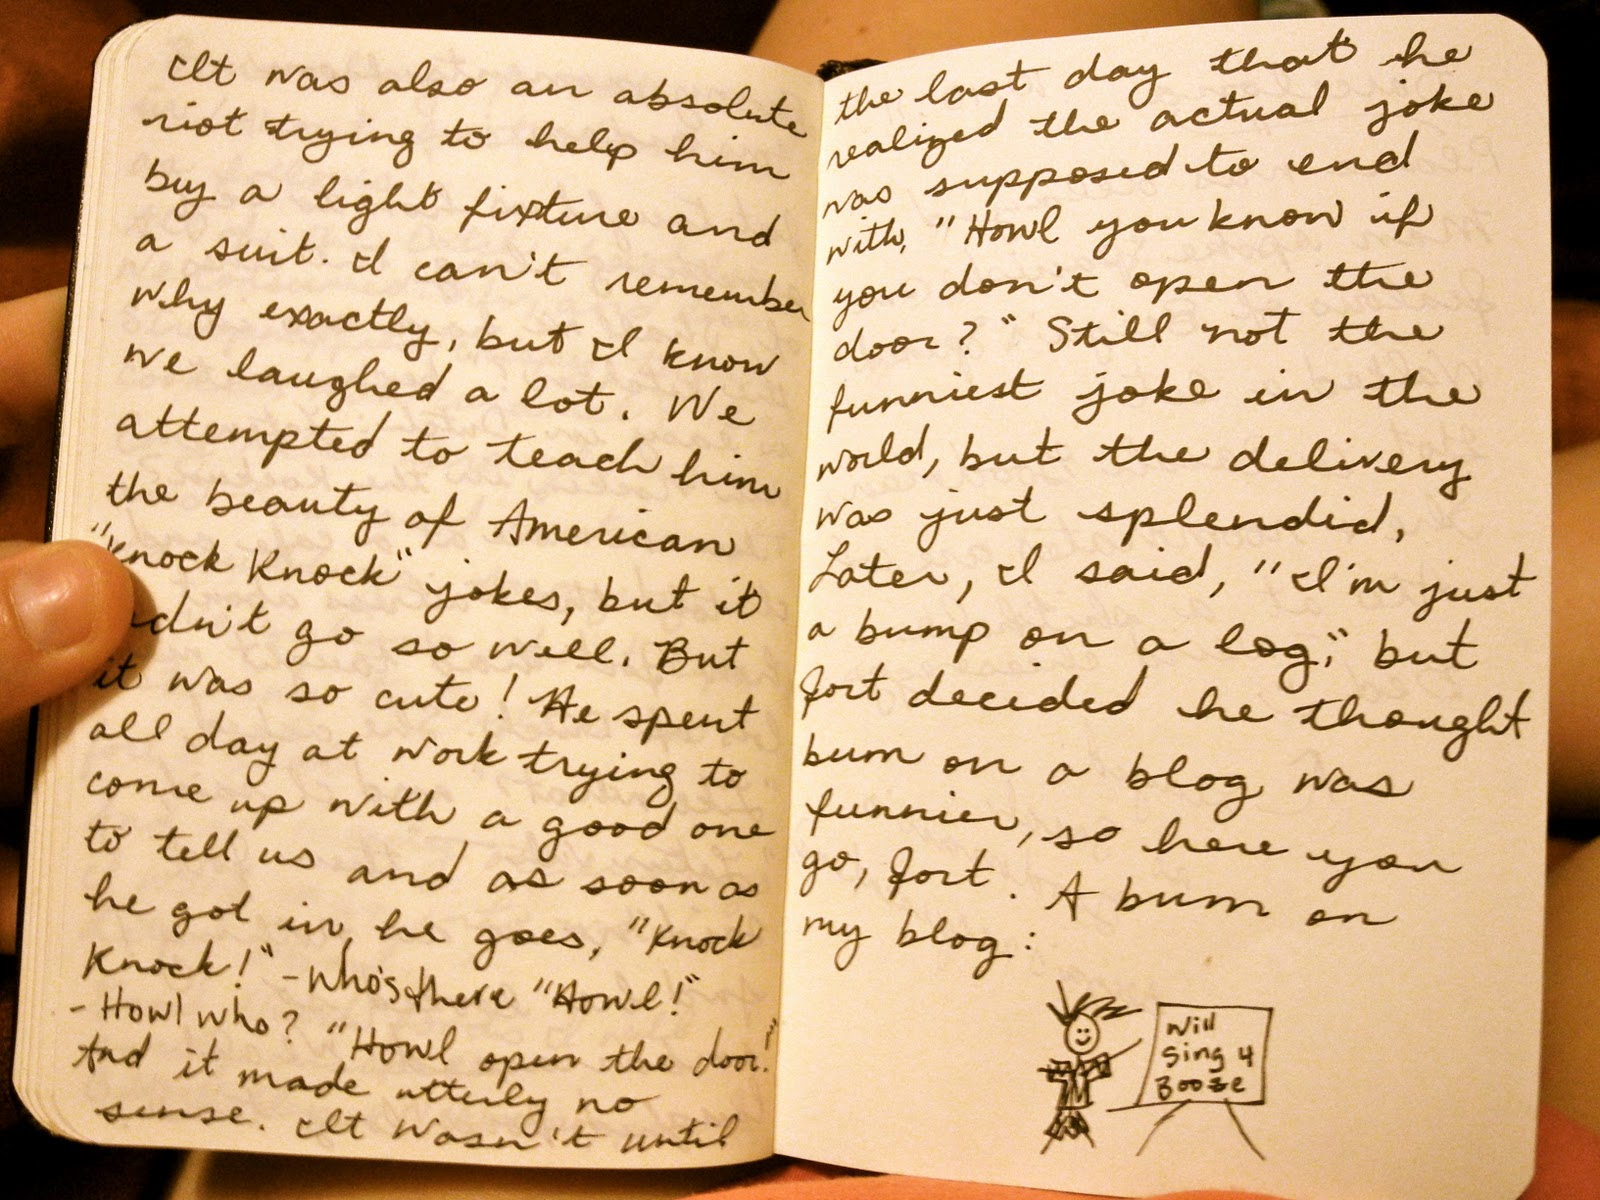 It was also an absolute
riot trying to help him
buy a light fixture and
a suit. I can't remember
why exactly, but I know
we laughed a lot. We
attempted to teach him
the beauty of American
"Knock Knock" jokes, but it
didn't go so well. But
it was so cute! He spent
all day at work trying to
come up with a good one
to tell us and as soon as
he got in, he goes, "Knock
Knock!" - Who's there "Howl!"
- Howl who? "Howl open the door!"
And it made utterly no
sense. It wasn't until
the last day that he
realized the actual joke
was supposed to end
with, "Howl you know if
you don't open the
door?" Still not the
funniest joke in the
world, but the delivery
was just splendid.
Later, I said, "I'm just
a bump on a log," but
Jort decided he thought
bum on a blog was
funnier, so here you
go, Jort. A bum on
my blog:
Will
Sing 4
Booze